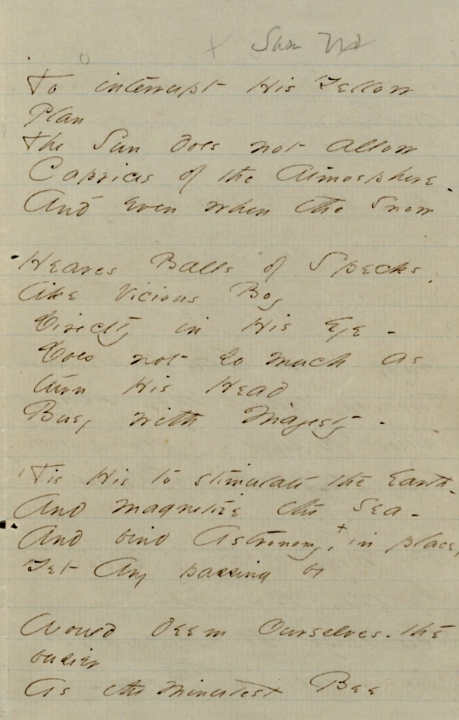 To interrupt His Yellow
Plan
The Sun does not allow
Caprices of the Atmosphere.
And even when the Snow
Heaves Balls of Specks,
like Vicious Boy
Directly in His Eye -
Does not so much as
turn His Head
Busy with Majesty -
'Tis His to stimulate the Earth -
And magnetize the Sea -
And bind Astronomy, + in place,
Yet Any passing by
Would deem Ourselves - the
busier
As the Minutest Bee